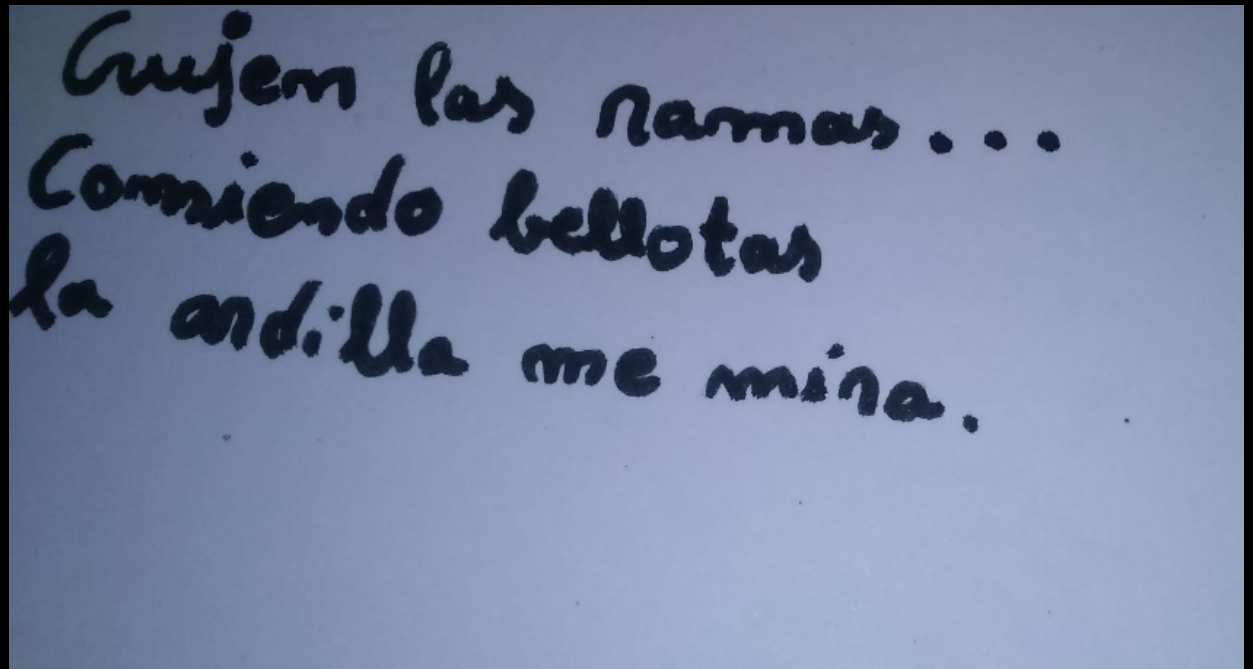 Crujen las ramas...
Comiendo bellotas
la ardilla me mira.